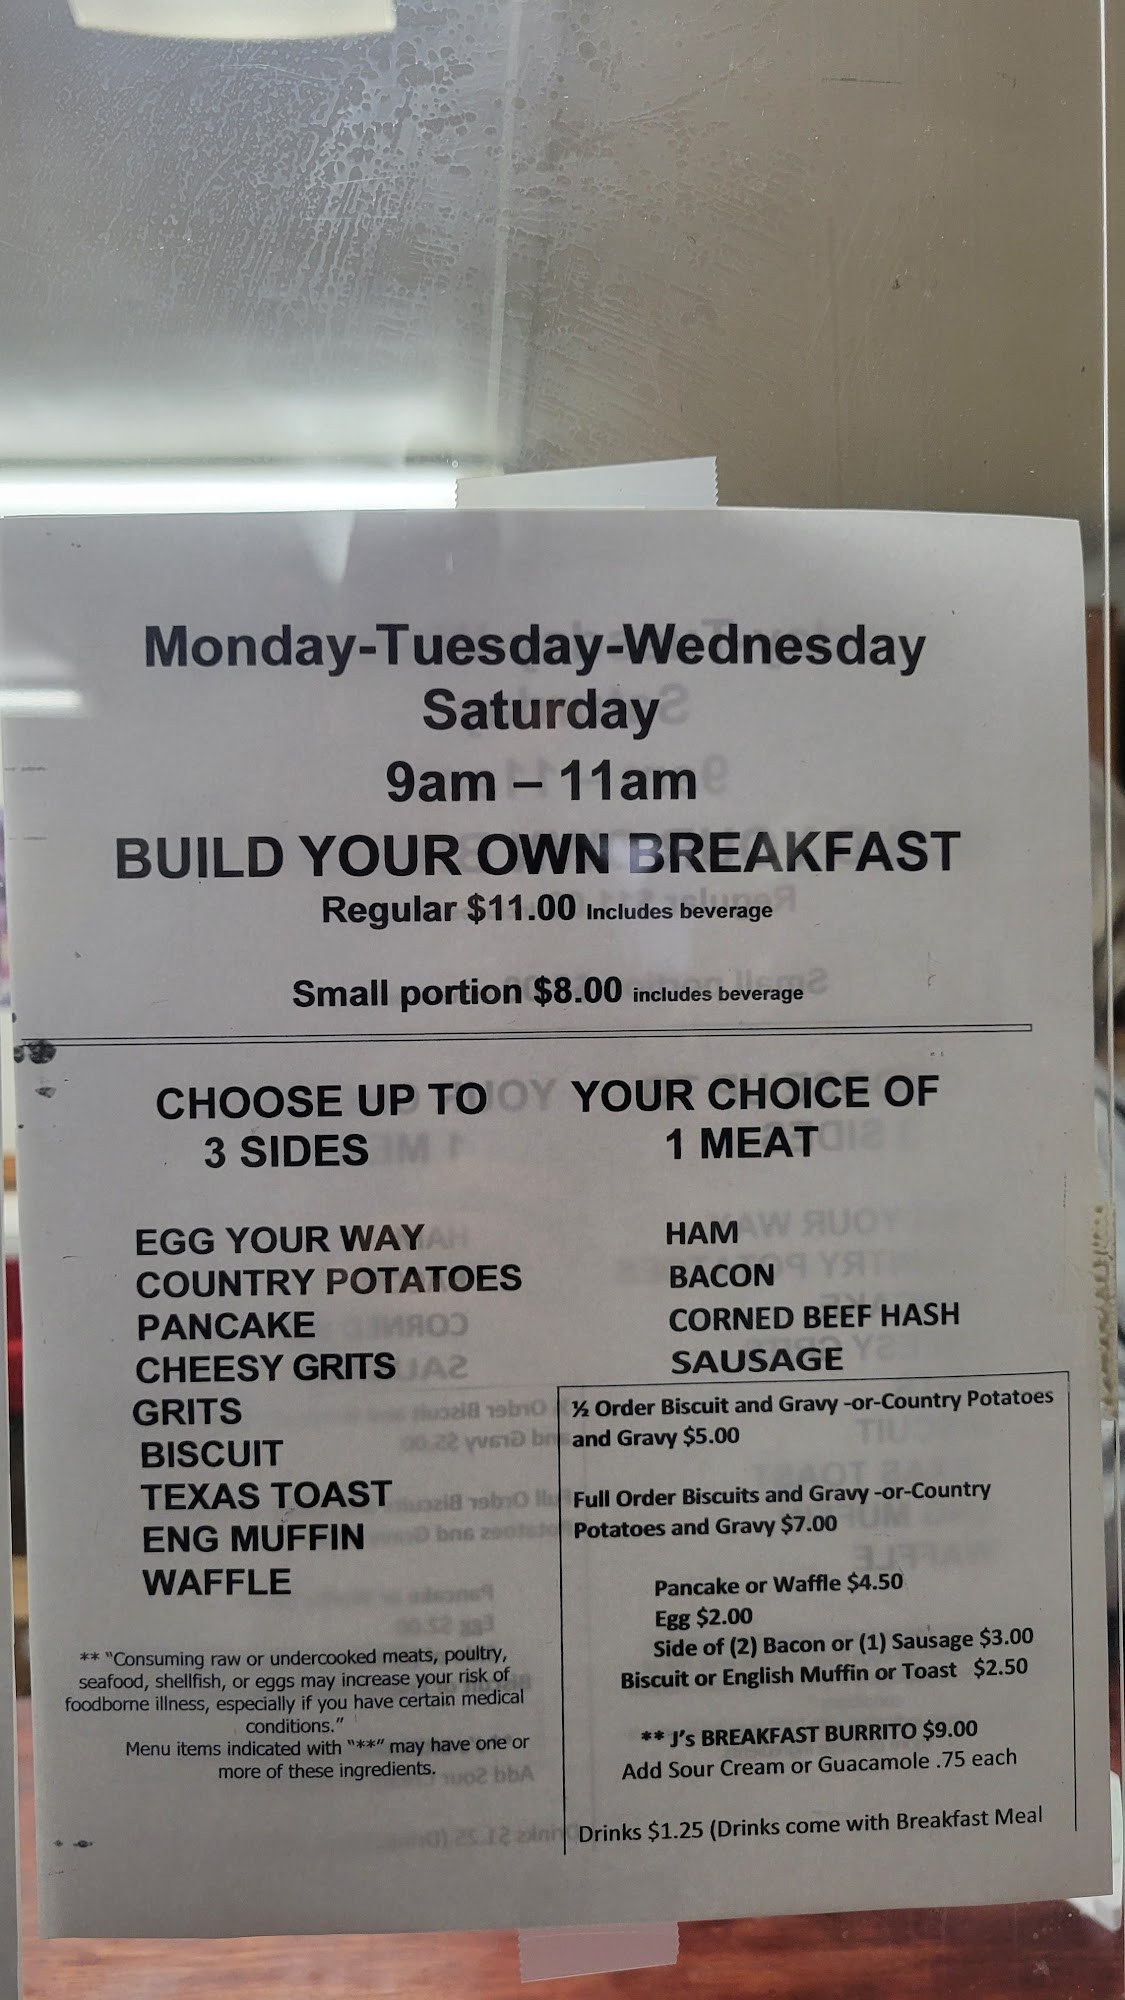 Monday-Tuesday-Wednesday
Saturday
9am – 11am
BUILD YOUR OWN BREAKFAST
Regular $11.00 Includes beverage
Small portion $8.00 includes beverage
CHOOSE UP TO
3 SIDES
EGG YOUR WAY
COUNTRY POTATOES
PANCAKE
CHEESY GRITS
GRITS
BISCUIT
TEXAS TOAST
ENG MUFFIN
WAFFLE
** "Consuming raw or undercooked meats, poultry,
seafood, shellfish, or eggs may increase your risk of
foodborne illness, especially if you have certain medical
conditions."
Menu items indicated with "**" may have one or
more of these ingredients.
YOUR CHOICE OF
1 MEAT
HAM
BACON
CORNED BEEF HASH
SAUSAGE
½ Order Biscuit and Gravy -or-Country Potatoes
and Gravy $5.00
Full Order Biscuits and Gravy -or-Country
Potatoes and Gravy $7.00
Pancake or Waffle $4.50
Egg $2.00
Side of (2) Bacon or (1) Sausage $3.00
Biscuit or English Muffin or Toast $2.50
** J's BREAKFAST BURRITO $9.00
Add Sour Cream or Guacamole .75 each
Drinks $1.25 (Drinks come with Breakfast Meal